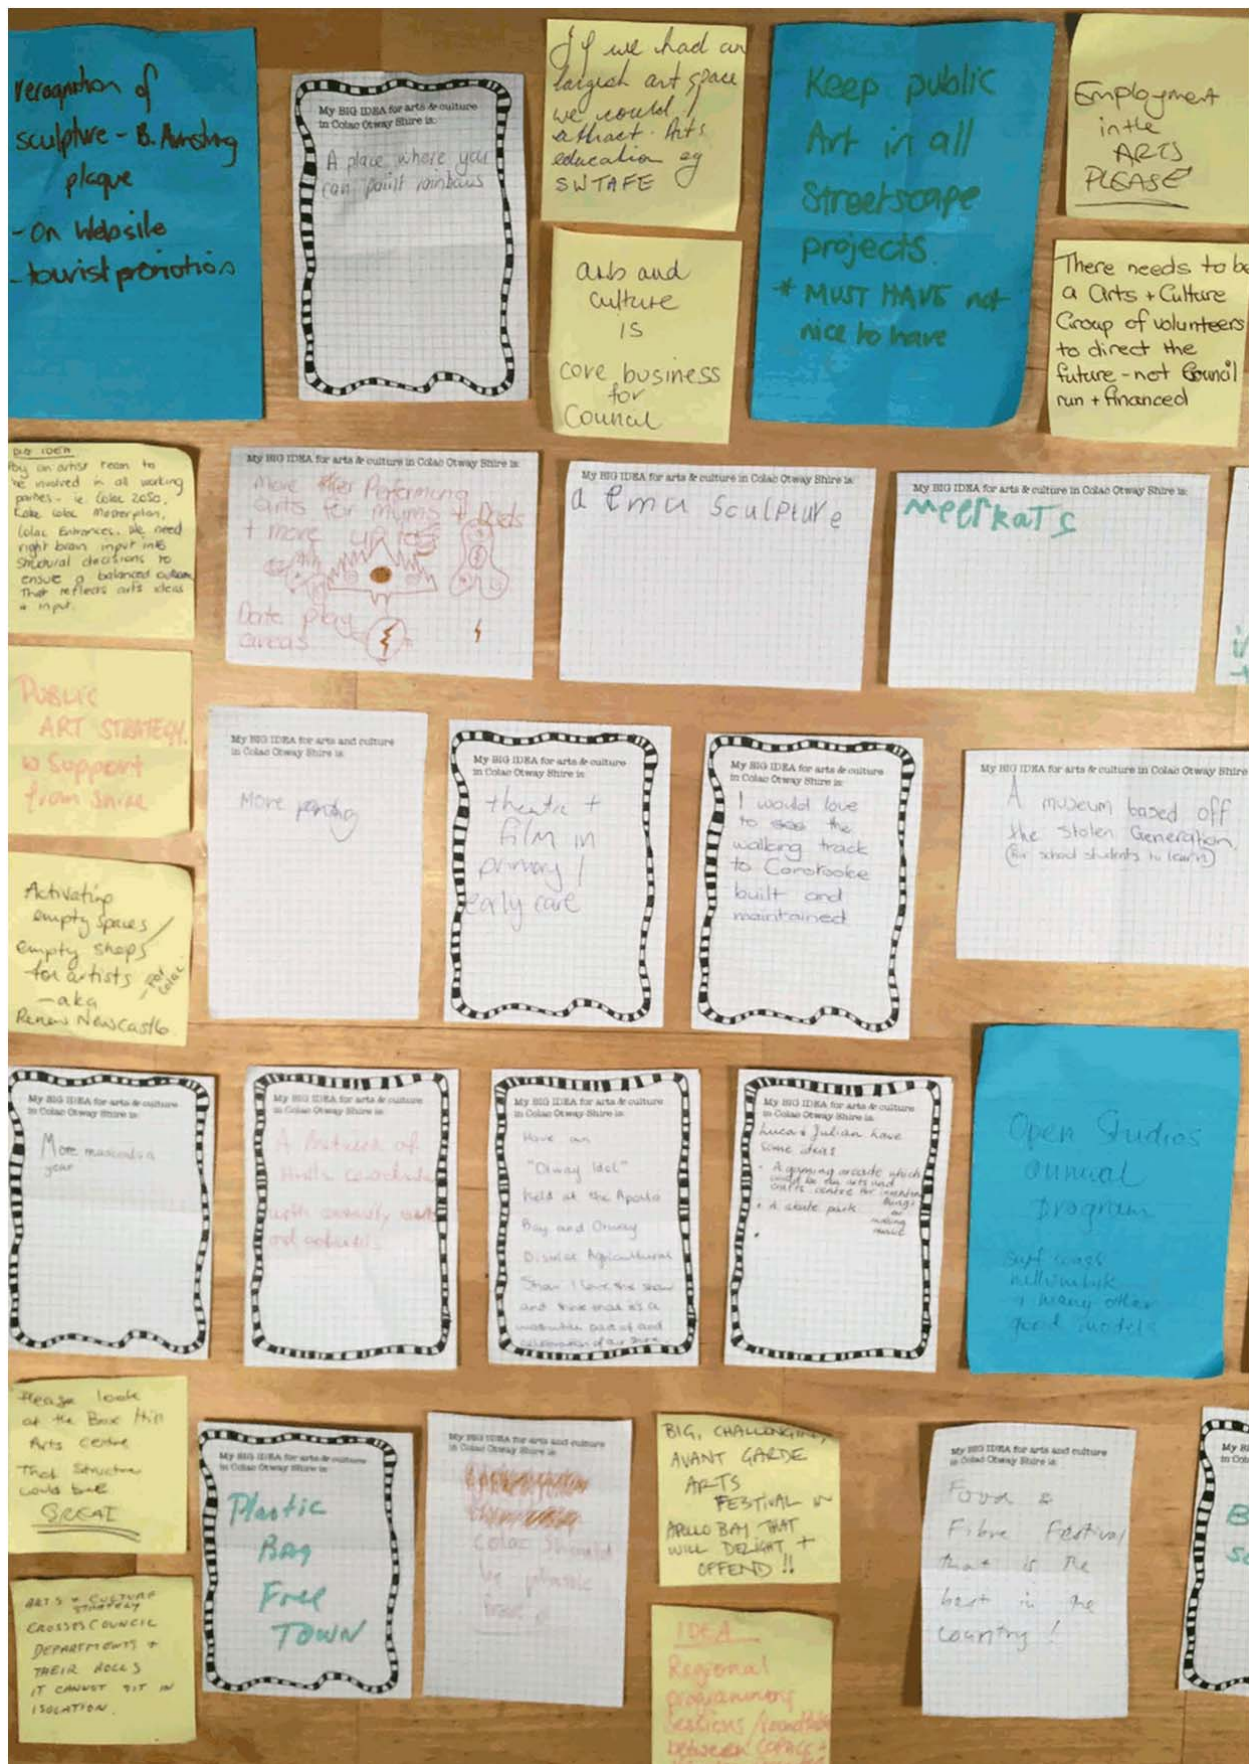 recognition of
sculpture - B. Armstrong
plaque
- On Website
- tourist promotion
My BIG IDEA for arts & culture
in Colac Otway Shire is:
A place where you
can paint rainbows
If we had an
largish art space
we could
attract Arts
education eg
SWTAFE
arts and
culture
is
core business
for
Council
Keep public
Art in all
Streetscape
projects.
* MUST HAVE not
nice to have
Employment
in the
ARTS
PLEASE
There needs to be
a Arts + Culture
Group of volunteers
to direct the
future - not Council
run + financed
BIG IDEA
be involved in all working
parties - ie Colac 2050,
Lake Colac Masterplan,
Colac Entrances. We need
right brain input into
structural decisions to
ensure a balanced outcome
that reflects arts ideas
+ input.
My BIG IDEA for arts & culture in Colac Otway Shire is:
More Performing
arts for mums + Dads
+ more
play
areas
My BIG IDEA for arts & culture in Colac Otway Shire is:
a emu sculpture
My BIG IDEA for arts & culture in Colac Otway Shire is:
meerkats
PUBLIC
ART STRATEGY.
w support
from shire
My BIG IDEA for arts and culture
in Colac Otway Shire is:
More
My BIG IDEA for arts & culture
in Colac Otway Shire is:
theatre +
film in
primary /
early care
My BIG IDEA for arts & culture
in Colac Otway Shire is:
I would love
to see the
walking track
to Cororooke
built and
maintained
My BIG IDEA for arts & culture in Colac Otway Shire
A museum based off
the Stolen Generation.
(for school students to learn)
Activating
empty spaces /
empty shops
for artists - for Colac
- aka
Renew Newcastle.
My BIG IDEA for arts & culture
in Colac Otway Shire is:
More musicals a
year
My BIG IDEA for arts & culture
in Colac Otway Shire is:
A
of
with
and
My BIG IDEA for arts & culture
in Colac Otway Shire is:
Have an
"Otway Idol"
held at the Apollo
Bay and Otway
District Agricultural
Show. I love the show
and think that it's a
part of and
celebration of our shire
My BIG IDEA for arts & culture
in Colac Otway Shire is:
Lucas & Julian have
some ideas
• A gaming arcade which
would be an arts and
crafts centre for inventing
things
or
making
music
• A skate park
•
Open Studios
annual
program
surf coast
nillumbik
+ many other
good models
Please look
at the Box Hill
Arts Centre
That Structure
would be
GREAT
My BIG IDEA for arts & culture
in Colac Otway Shire is:
Plastic
Bag
Free
TOWN
My BIG IDEA for arts and culture
in Colac Otway Shire is:
Colac should
be plastic
BIG, CHALLENGING,
AVANT GARDE
ARTS
FESTIVAL IN
APOLLO BAY THAT
WILL DELIGHT +
OFFEND !!
My BIG IDEA for arts and culture
in Colac Otway Shire is:
Food &
Fibre Festival
that is the
best in the
country!
ARTS & CULTURE
STRATEGY
CROSSES COUNCIL
DEPARTMENTS +
THEIR ROLLS
IT CANNOT SIT IN
ISOLATION.
IDEA
Regional
programming
sessions / roundtable
between COPACC